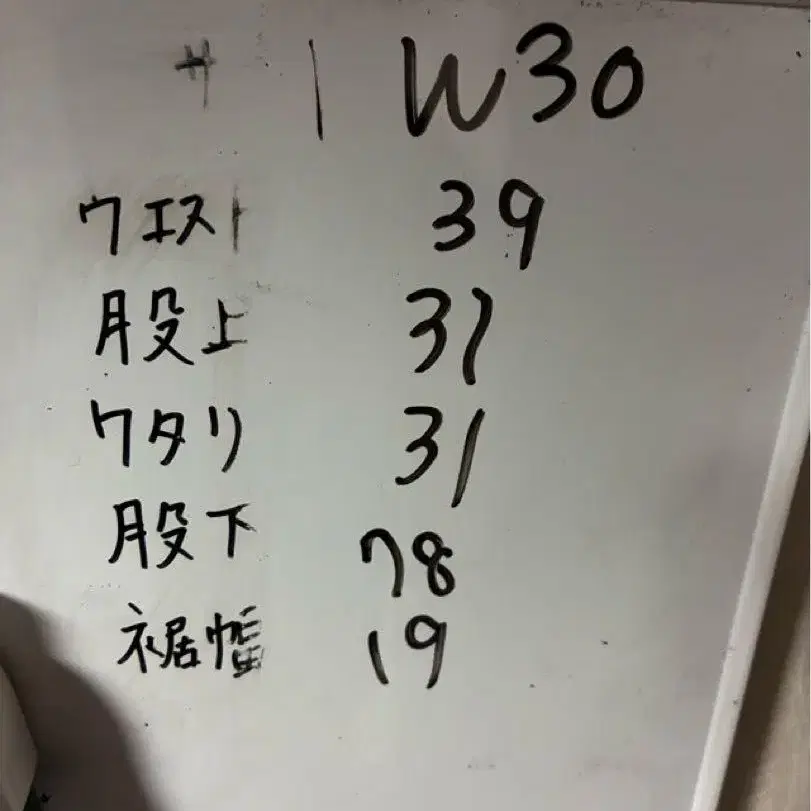 サ | W30
ウエスト 39
股上 31
ワタリ 31
股下 78
裾幅 19